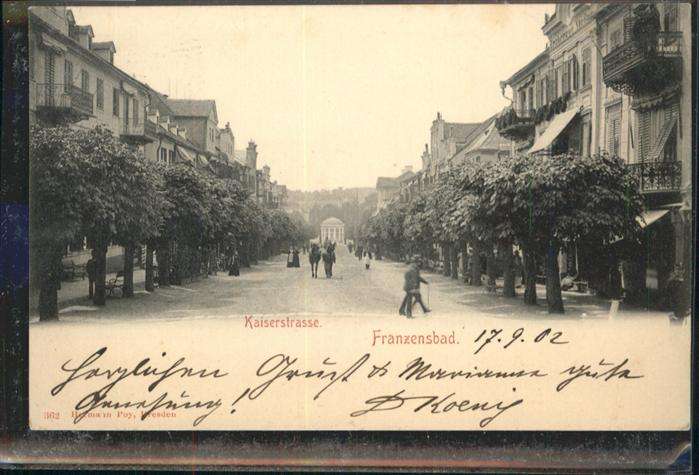 Kaiserstrasse.
Franzensbad. 17.9.02
Herzlichen Gruß & Marianne gute
Genesung! Dr Koenig
362 Hermann Poy, Dresden